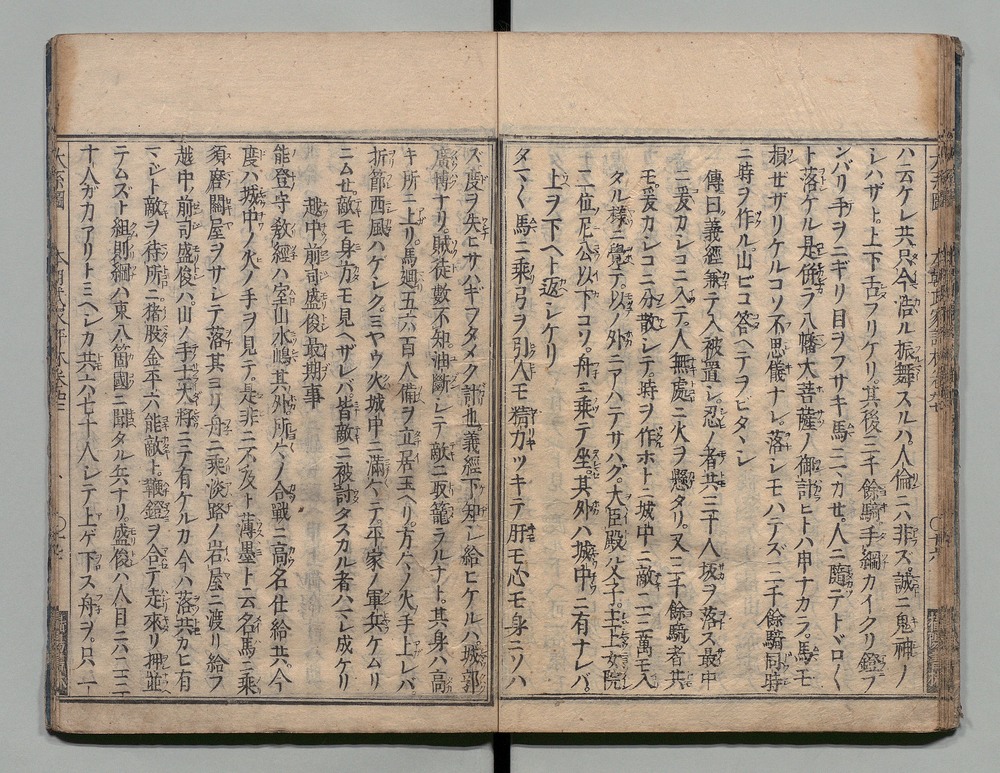 ハ云ケレ共只今浩ル振舞スルハ人倫ニハ非ズ。誠ニ鬼神ノ
シハザト。上下舌フリケリ。其後三千餘騎手綱カイクリ鐙フ
ンバリ手ヲニギリ目ヲフサキ馬ニマカせ。人ニ隨テトドロ〱
ト落ケル是倂ラ八幡大菩薩ノ御計ヒトハ申ナカラ。馬モ
損せザリケルコソ不思儀ナレ。落シモハテズ三千餘騎同時
ニ時ヲ作ル。山ビコ答ヘテヲビタヽシ
傳曰義經兼テ入被置シ。忍ノ者共三十人坂ヲ落ス最中
ニ爰カシコニ入テ。人無處ニ火ヲ懸タリ。又三千餘騎者共
モ爰カシコニ分散シテ。時ヲ作ホトニ城中ニ敵ニ二三萬モ入
タル樣ニ覺テ。以ノ外ニアハテサハグ。大臣殿父子。主上女院
二位尼公以下コリ。舟ニ乘テ坐。其外ハ城中ニ有ナレバ。
上ヲ下ヘト返シケリ
タマ〱馬ニ乘弓ヲ引人モ精力ツキテ肝モ心モ身ニソハ
ズ。度ヲ失ヒサハギフタメク計也。義經下知シ給ヒケルハ。城郭
廣博ナリ。賊徒數不知油斷シテ敵ニ取籠ラルナト。其身ハ高
キ所ニ上リ。馬廻五六百人備ヲ立居玉ヘリ。方々ノ火ノ手上レバ
折節西風ハゲシク。ミヤウ火城中ニ滿々テ。平家ノ軍兵ケムリ
ニムせ。敵モ身方モ見ヘザレバ。皆敵ニ被討タスカル者ハマレ成ケリ
越中前司盛俊最期事
能登守敎經ハ室山水嶋其外所々ノ合戰ニ高名仕給共。今
度ハ城中ノ火ノ手ヲ見テ。是非ニ不及ト薄墨ト云名馬ニ乘
須磨關屋ヲサシテ落其ヨリ舟ニ乘淡路ノ岩屋ニ渡リ給フ
越中前司盛俊ハ。山ノ手ノ大將ニテ有ケルカ今ハ落共カヒ有
マシト敵ヲ待所ニ猪股金平六能敵ト。鞭鐙ヲ合テ走來リ押並
テムズト組。則綱ハ東八箇國ニ聞タル兵ナリ。盛俊ハ人目ニ六二三
十人ガ力アリトミヘシカ共六七十人シテ上ゲ下ス舟ヲ。只一